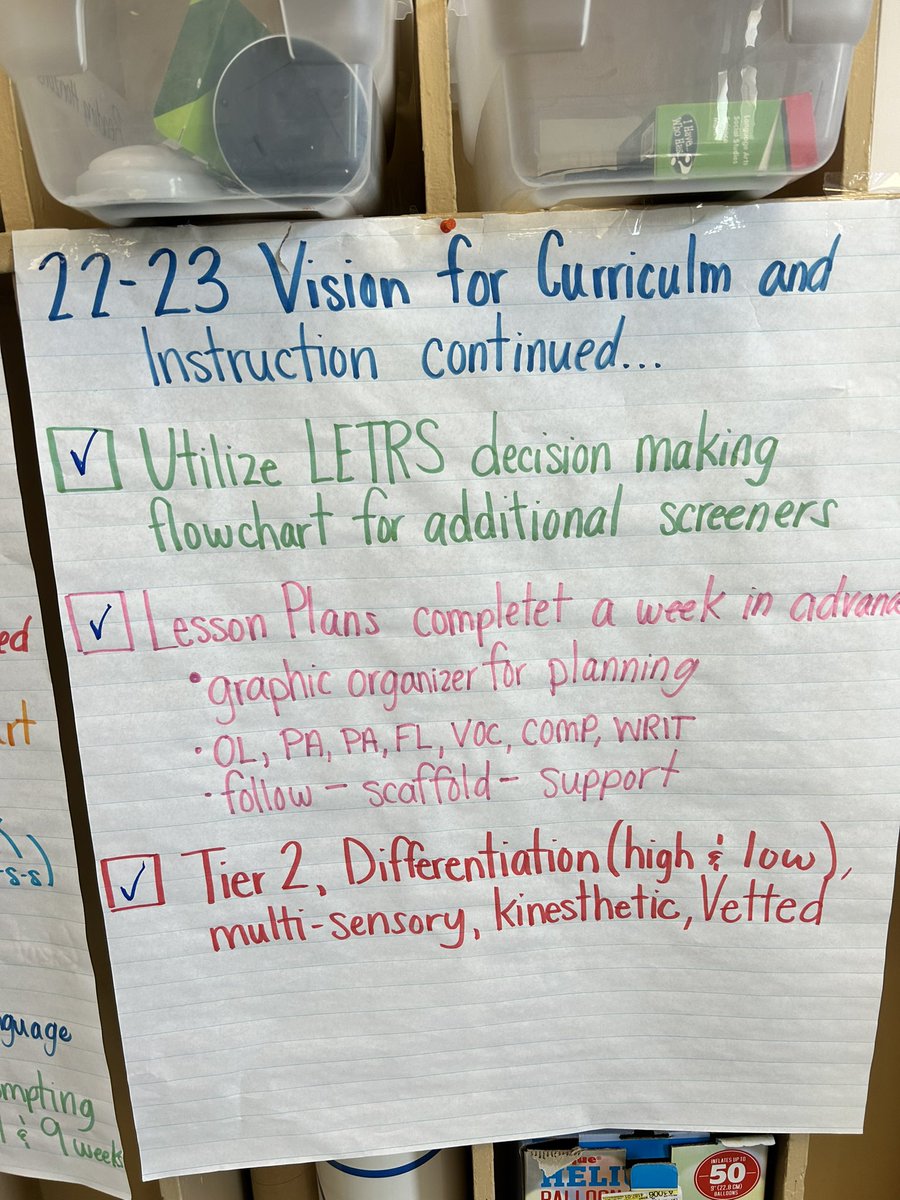 I Have...
Who Has?
Language Arts
Social Studies
22-23 Vision for Curriculm and
Instruction continued...
✓ Utilize LETRS decision making
flowchart for additional screeners
✓ Lesson Plans completet a week in advanc
• graphic organizer for planning
• OL, PA, PA, FL, VOC, COMP, WRIT
• follow - scaffold - support
✓ Tier 2, Differentiation (high & low),
multi-sensory, kinesthetic, Vetted
ed
rt
-s-s)
guage
mpting
& 9 weeks
HELI
BALLOON
INFLATES UP TO
50
9" (22.8 CM)
BALLOONS